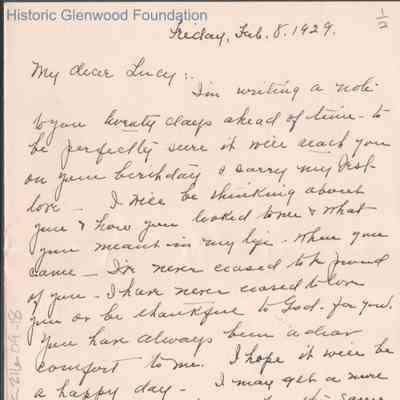 Historic Glenwood Foundation
1/2
Friday, Feb. 8. 1929.
My dear Lucy:.
I'm writing a note
to you twenty days ahead of time - to
be perfectly sure it will reach you
on your birthday & carry my best
love - I will be thinking about
you & how you looked to me & what
you meant in my life - when you
came - I've never ceased to be proud
of you - I have never ceased to love
you or be thankful to God - for you.
You have always been a dear
comfort to me. I hope it will be
a happy day - I may get a more